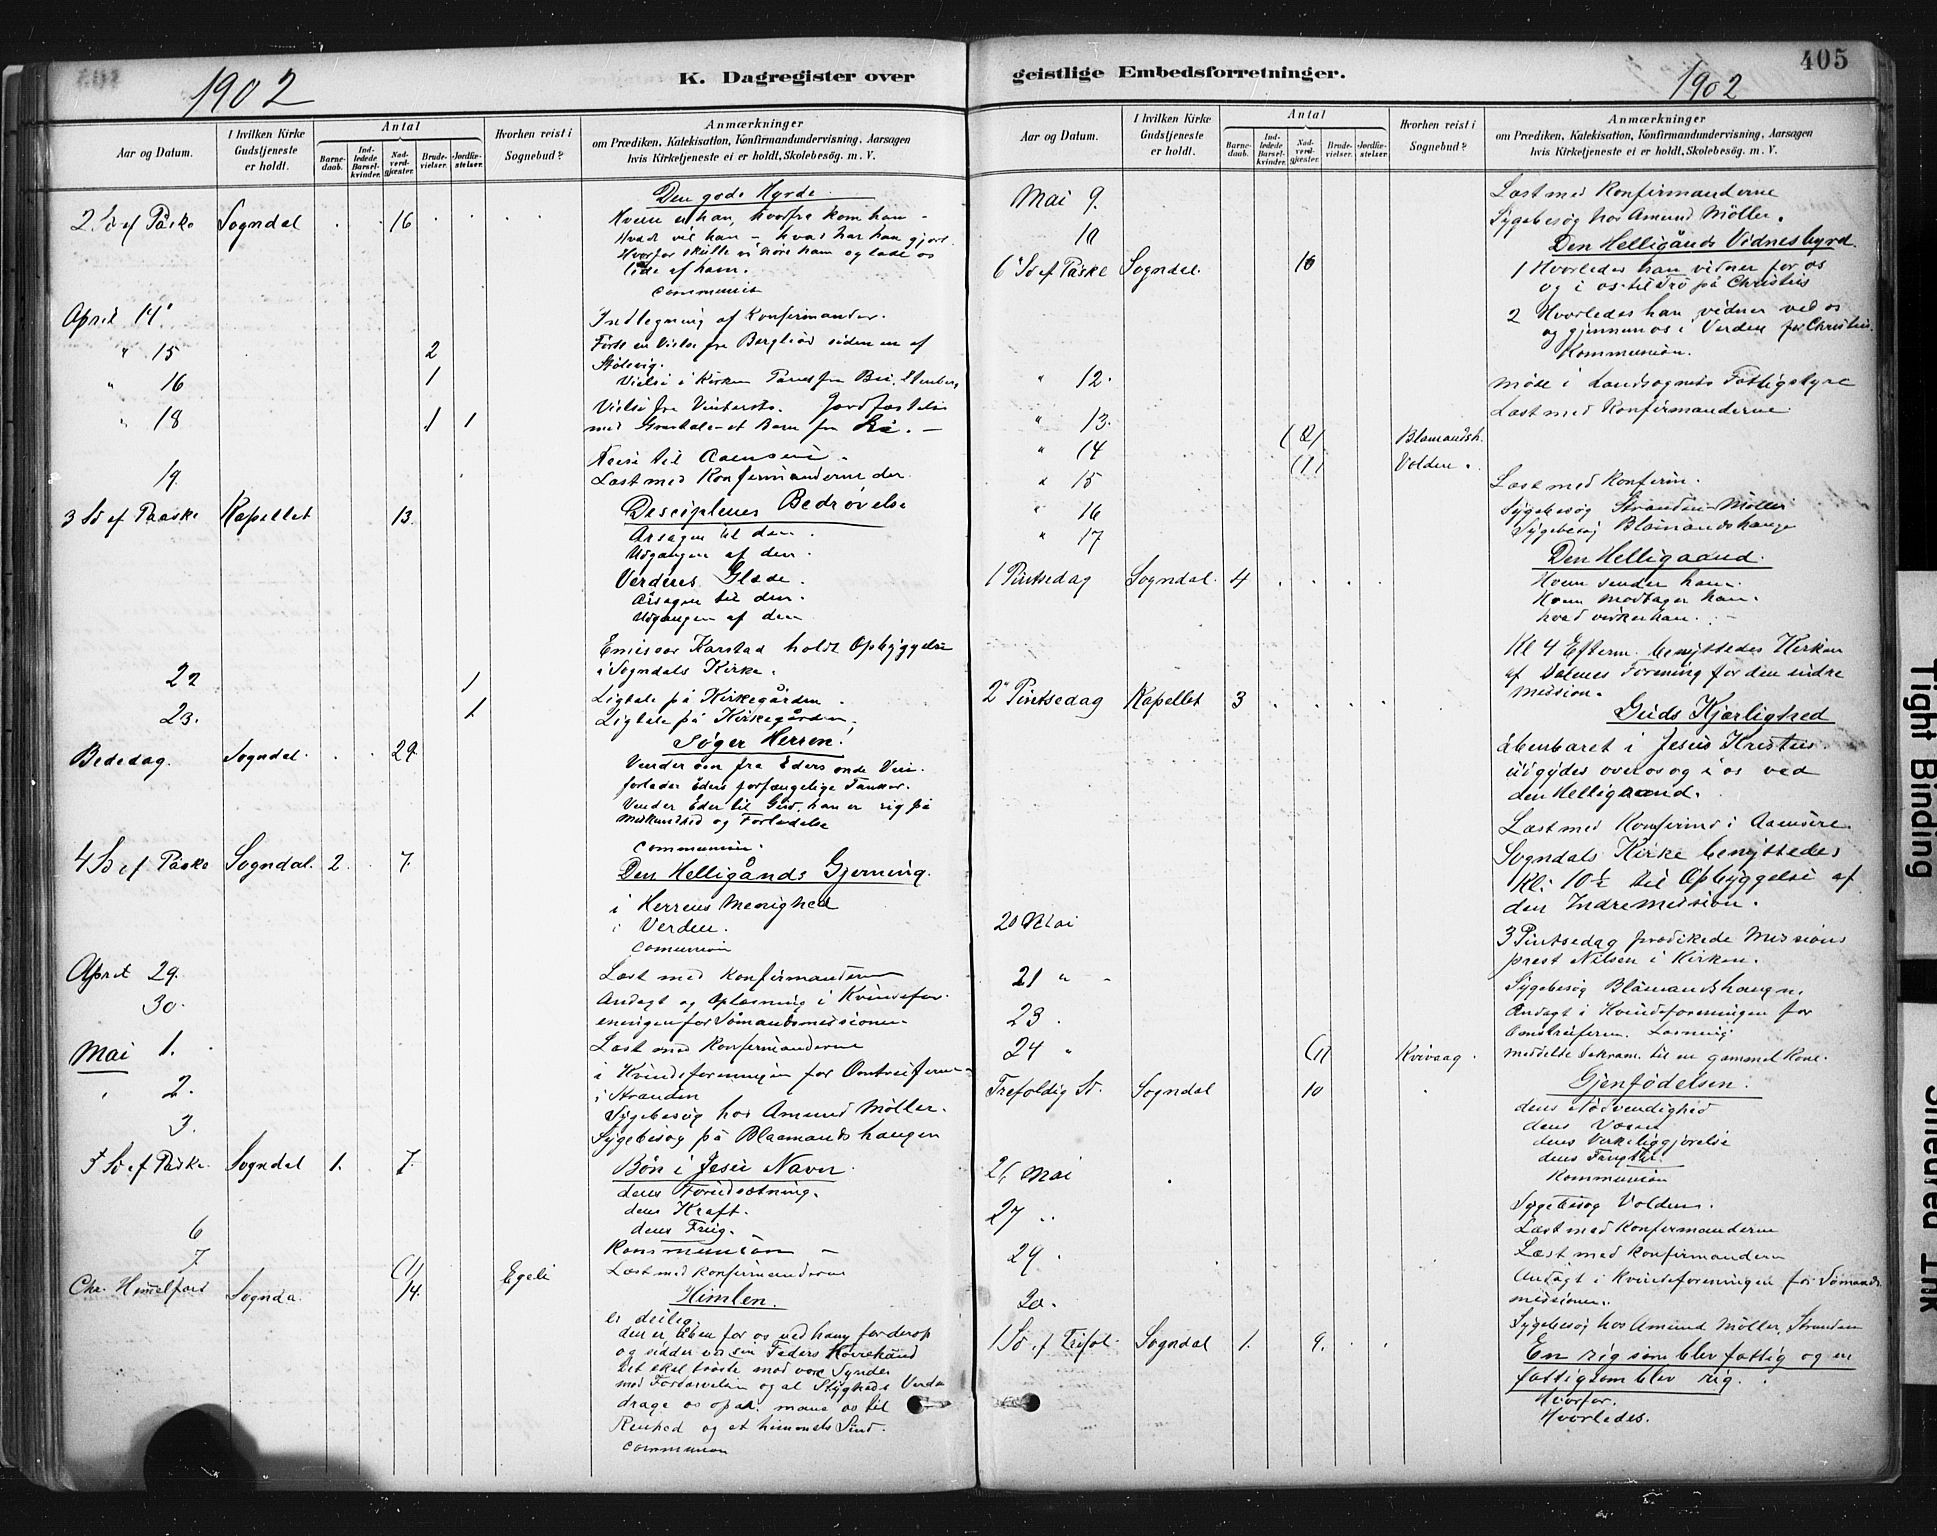 1902
K. Dagregister over
Aar og Datum.
I hvilken Kirke Gudstjeneste er holdt.
Antal
Barne-daab.
Ind-ledede Barsel-kvinder.
Nad-verd-gjæster.
Brude-vielser.
Jordfæ-stelser.
Hvorhen reist i Sognebud?
Anmærkninger
om Prædiken, Katekisation, Konfirmandundervisning, Aarsagen
hvis Kirketjeneste ei er holdt, Skolebesög. m. V.
Den gode Hyrde.
2. Sd ef Påske Sogndal 16 Hvem er han, hvorfra kom han -
Hvad vil han - hvad har han gjort.
Hvorfor skulle vi höre ham og lade os
lede af ham.
Communion
April 14 Indlegning af Konfirmander.
" 15 2
" 16 1 Vielse i Kirken
" 18 1 1 Vielse fra Jordfæstelse
med et Barn fra
19 Reise til Aaensire.
Læst med Konfirmanderne der
3 Sd ef Paaske Kapellet 13. Disciplenes Bedrøvelse
Årsagen til den.
Udgangen af den.
Verdens Glæde.
Årsagen til den.
Udgangen af den
Emissær Karstad holdt Opbyggelse
i Sogndals Kirke.
22 1 Ligtale på Kirkegården.
23. 1 Ligtale på Kirkegården.
Søger Herren!
Bededag. Sogndal. 29 Vender om fra Eders onde Vei.
forlader Eders forfængelige Tanker.
Vender Eder til Gud, han er rig på
Miskundhed og Forladelse
Communion.
4 Sd ef Påske Sogndal. 2. 7. Den Helligånds Gjerning.
i Herrens Menighed
i Verden.
Comunion
April 29. Læst med Konfirmanderne
30. Andagt og Oplæsning i Kvindefor-
eningen for Sömandsmissionen.
Mai 1. Læst med Konfirmanderne
2. i Kvindeforeningen for
i Stranden
3. Sygebesøg hos Amund Møller.
Sygebesøg på Blaamandshaugen
5 Sd ef Påske Sogndal 1. 7. Bön i Jesu Navn.
dens Forudsætning.
dens Kraft.
dens Frug.
6 Kommunion -
7 (1) Egeli Læst med Konfirmanderne
Chr. Himmelfart Sognda 14. Himlen.
er deilig.
den er åben for os ved ham foer derop
og sidder ved sin Faders Høirehånd
Det skal trøste mod vore Synder
mod Fordærvelsen og al Stygheds Verden
drage os opad. mane os til
Renhed og et himmelsk Sind.
Communion
geistlige Embedsforretninger.
405
1902
Aar og Datum.
I hvilken Kirke Gudstjeneste er holdt.
Antal
Barne-daab.
Ind-ledede Barsel-kvinder.
Nad-verd-gjæster.
Brude-vielser.
Jordfæ-stelser.
Hvorhen reist i Sognebud?
Anmærkninger
om Prædiken, Katekisation, Konfirmandundervisning, Aarsagen
hvis Kirketjeneste ei er holdt, Skolebesög. m. V.
Mai 9. Læst med Konfirmanderne
10 Sygebesøg hos Amund Möller.
Den Helligånds Vidnesbyrd.
6 Sd ef Påske Sogndal 10 1 Hvorledes han vidner for os
og i os til Tro på Christus
2 Hvorledes han vidner ved os
og gjennem os i Verden for Christus.
Kommunion.
" 12. Møde i Landsognets Fattigstyre
" 13. Læst med Konfirmanderne
" 14 (2) Blamandsh.
" 15 (1) Volden. Læst med Konfirm.
" 16 Sygebesøg Stranden Møller
" 17 Sygebesøg Blåmandshaugen
Den Helligaand.
1 Pintsedag Sogndal. 4 Hvem sender ham.
Hvem modtager ham.
hvad virker han.
Kl 4 Efterm. benyttedes Kirken
af Dalenes Forening for den indre
Mission.
2 Pintsedag Kapellet 3 Guds Kjærlighed
åbenbaret i Jesus Kristus
udgydes over os og i os ved
den Helligaand.
Læst med Konfirmd i Aaensire.
Sogndals Kirke benyttedes
Kl. 10½ til Opbyggelse af
den Indremission.
20 Mai 3 Pintsedag prædikede Missions
prest Nilsen i Kirken.
21 " Sygebesøg Blåmandshaugn.
23. Andagt i Kvindeforeningen for
24 " (1) Kvivaag. meddelte Sakram. til en gammel Kone.
Trefoldig Sd. Sogndal 10 Gjenfødelsen.
dens Nødvendighed
dens Væsen
dens Virkeliggjørelse
dens Frugter.
Kommunion
26 Mai Sygebesøg Volden.
27 " Læst med Konfirmanderne
29. Læst med Konfirmandern
Andagt i Kvindeforeningen for Sømands
missionen.
Sygebesøg hos Amund Møller, Stranden
1 Sd ef Trifol. Sogndal 1. 9. En rig som blev fattig og en
fattig som blev rig.
Hvorfor.
Hvorledes.
Tight Binding
Smeared Ink